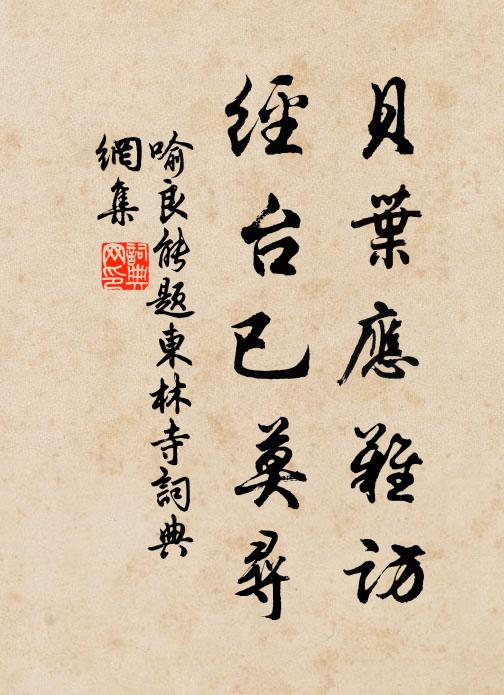 貝葉應難訪
經台已莫尋
喻良能題東林寺詞典
網集
詞典
网印